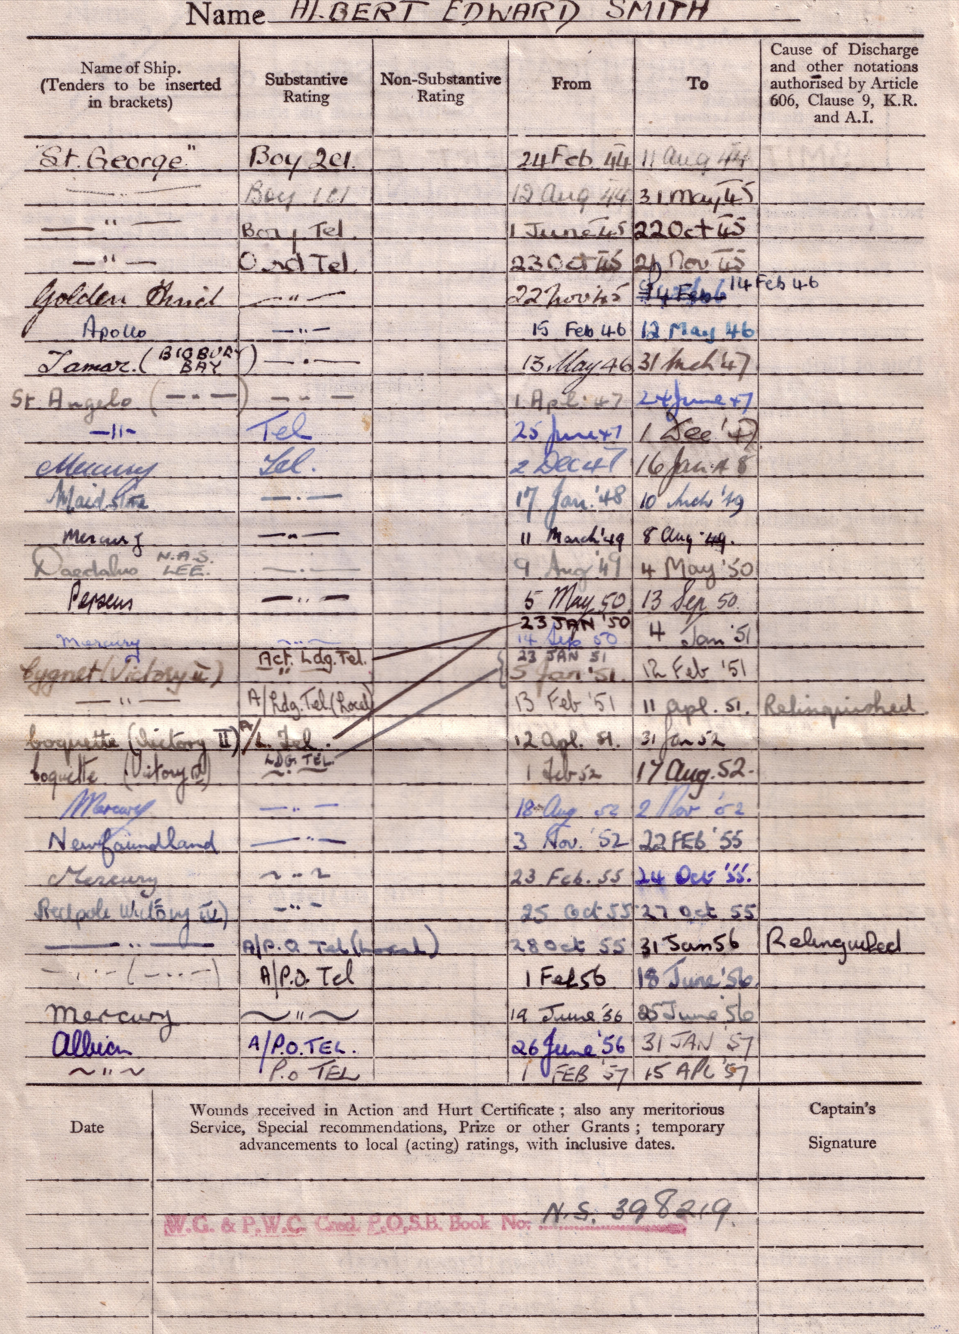 Name ALBERT EDWARD SMITH
Name of Ship. (Tenders to be inserted in brackets) Substantive Rating Non-Substantive Rating From To Cause of Discharge and other notations authorised by Article 606, Clause 9, K.R. and A.I.
"St. George" Boy 2cl 24 Feb. 44 11 Aug 44
— " — Boy 1cl 12 Aug 44 31 May 45
— " — Boy Tel 1 June 45 22 Oct 45
— " — Ord Tel. 23 Oct 45 21 Nov 45
Golden Hind — " — 22 Nov 45 14 Feb 46
Apollo — " — 15 Feb 46 12 May 46
Tamar. (BIGBURY BAY) — " — 13 May 46 31 Mch '47
St. Angelo (— " —) — " — 1 Apl. 47 24 June 47
— " — Tel 25 June 47 1 Dec '47
Mercury Tel. 2 Dec 47 16 Jan. 48
Maidstone — " — 17 Jan. '48 10 Mch '49
Mercury — " — 11 March '49 8 Aug. 49.
Daedalus N.A.S. LEE. — " — 9 Aug '49 4 May '50
Perseus — " — 5 May 50 13 Sep 50.
23 JAN '50
Mercury — " — 14 Sep 50 4 Jan '51
Act. Ldg. Tel. 23 JAN 51
Cygnet (Victory II) " " 5 Jan '51. 12 Feb '51
— " — A/Ldg. Tel (Local) 13 Feb '51 11 apl. 51. Relinquished
Coquette (Victory II) A/L. Tel. 12 Apl. 51. 31 Jan 52
Coquette (Victory II) LDG. TEL. 1 Feb 52 17 Aug. 52.
Mercury — " — 18 Aug 52 2 Nov '52
Newfoundland — " — 3 Nov. '52 22 FEB '55
Mercury ~ " ~ 23 Feb. 55 24 Oct '55.
Redpole — " — 25 Oct 55 27 Oct 55
— " — A/P.O. Tel (Local) 28 Oct 55 31 Jan 56 Relinquished
— " — (— " —) A/P.O. Tel 1 Feb 56 18 June '56
Mercury ~ " ~ 19 June '56 25 June '56
Albion A/P.O. TEL. 26 June '56 31 JAN '57
~ " ~ P.O TEL 1 FEB '57 15 APL '57
Date Wounds received in Action and Hurt Certificate; also any meritorious Service, Special recommendations, Prize or other Grants; temporary advancements to local (acting) ratings, with inclusive dates. Captain's Signature
W.G. & P.W.C. Cred. P.O.S.B. Book No: N.S. 398219.